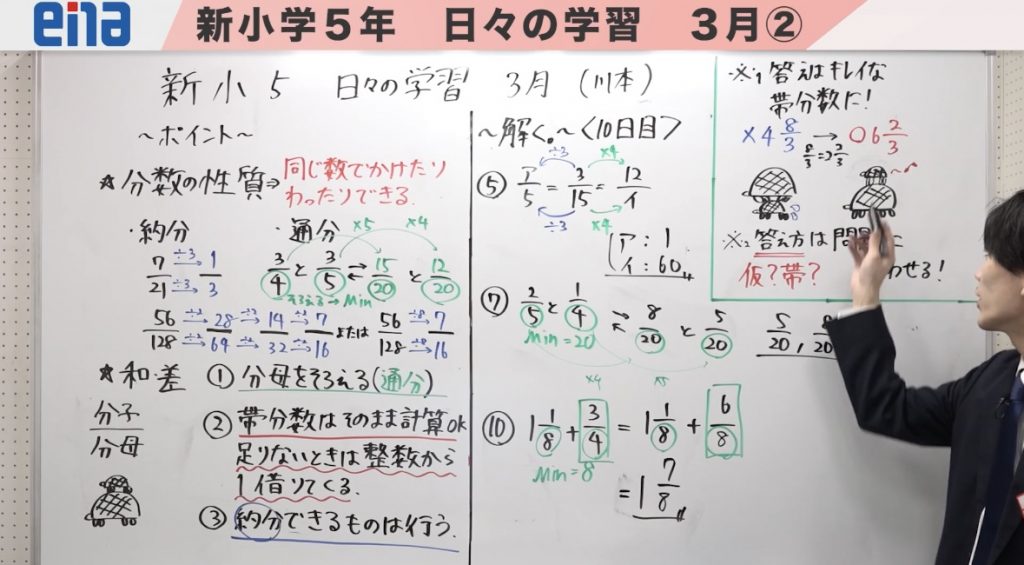 ena 新小学５年 日々の学習 ３月②
新小5 日々の学習 3月 (川本)
~ポイント~
☆分数の性質⇒同じ数でかけたり
わったりできる.
・約分
7/21 ÷3→ ÷3→ 1/3
56/128 → 28/64 → 14/32 → 7/16 または 56/128 ÷8→ ÷8→ 7/16
・通分
×5 ×4
3/4 と 3/5 ⇄ 15/20 と 12/20
そろえる→Min
☆和・差
分子/分母
① 分母をそろえる(通分)
② 帯分数はそのまま計算OK
足りないときは整数から
1借りてくる.
③ 約分できるものは行う.
~解く。~<10日目>
÷3 ×4
⑤ ア/5 = 3/15 = 12/イ
÷3 ×4
ア:1
イ:60
⑦ 2/5 と 1/4 ⇄ 8/20 と 5/20
Min=20
5/20, 8/20
×4 ×5
⑩ 1 1/8 + 3/4 = 1 1/8 + 6/8
Min=8
= 1 7/8
・※1 答えはキレイな
帯分数に!
×4 8/3 → ○6 2/3
8/3=2 2/3
8
・※2 答え方は問
仮?帯? わせる!